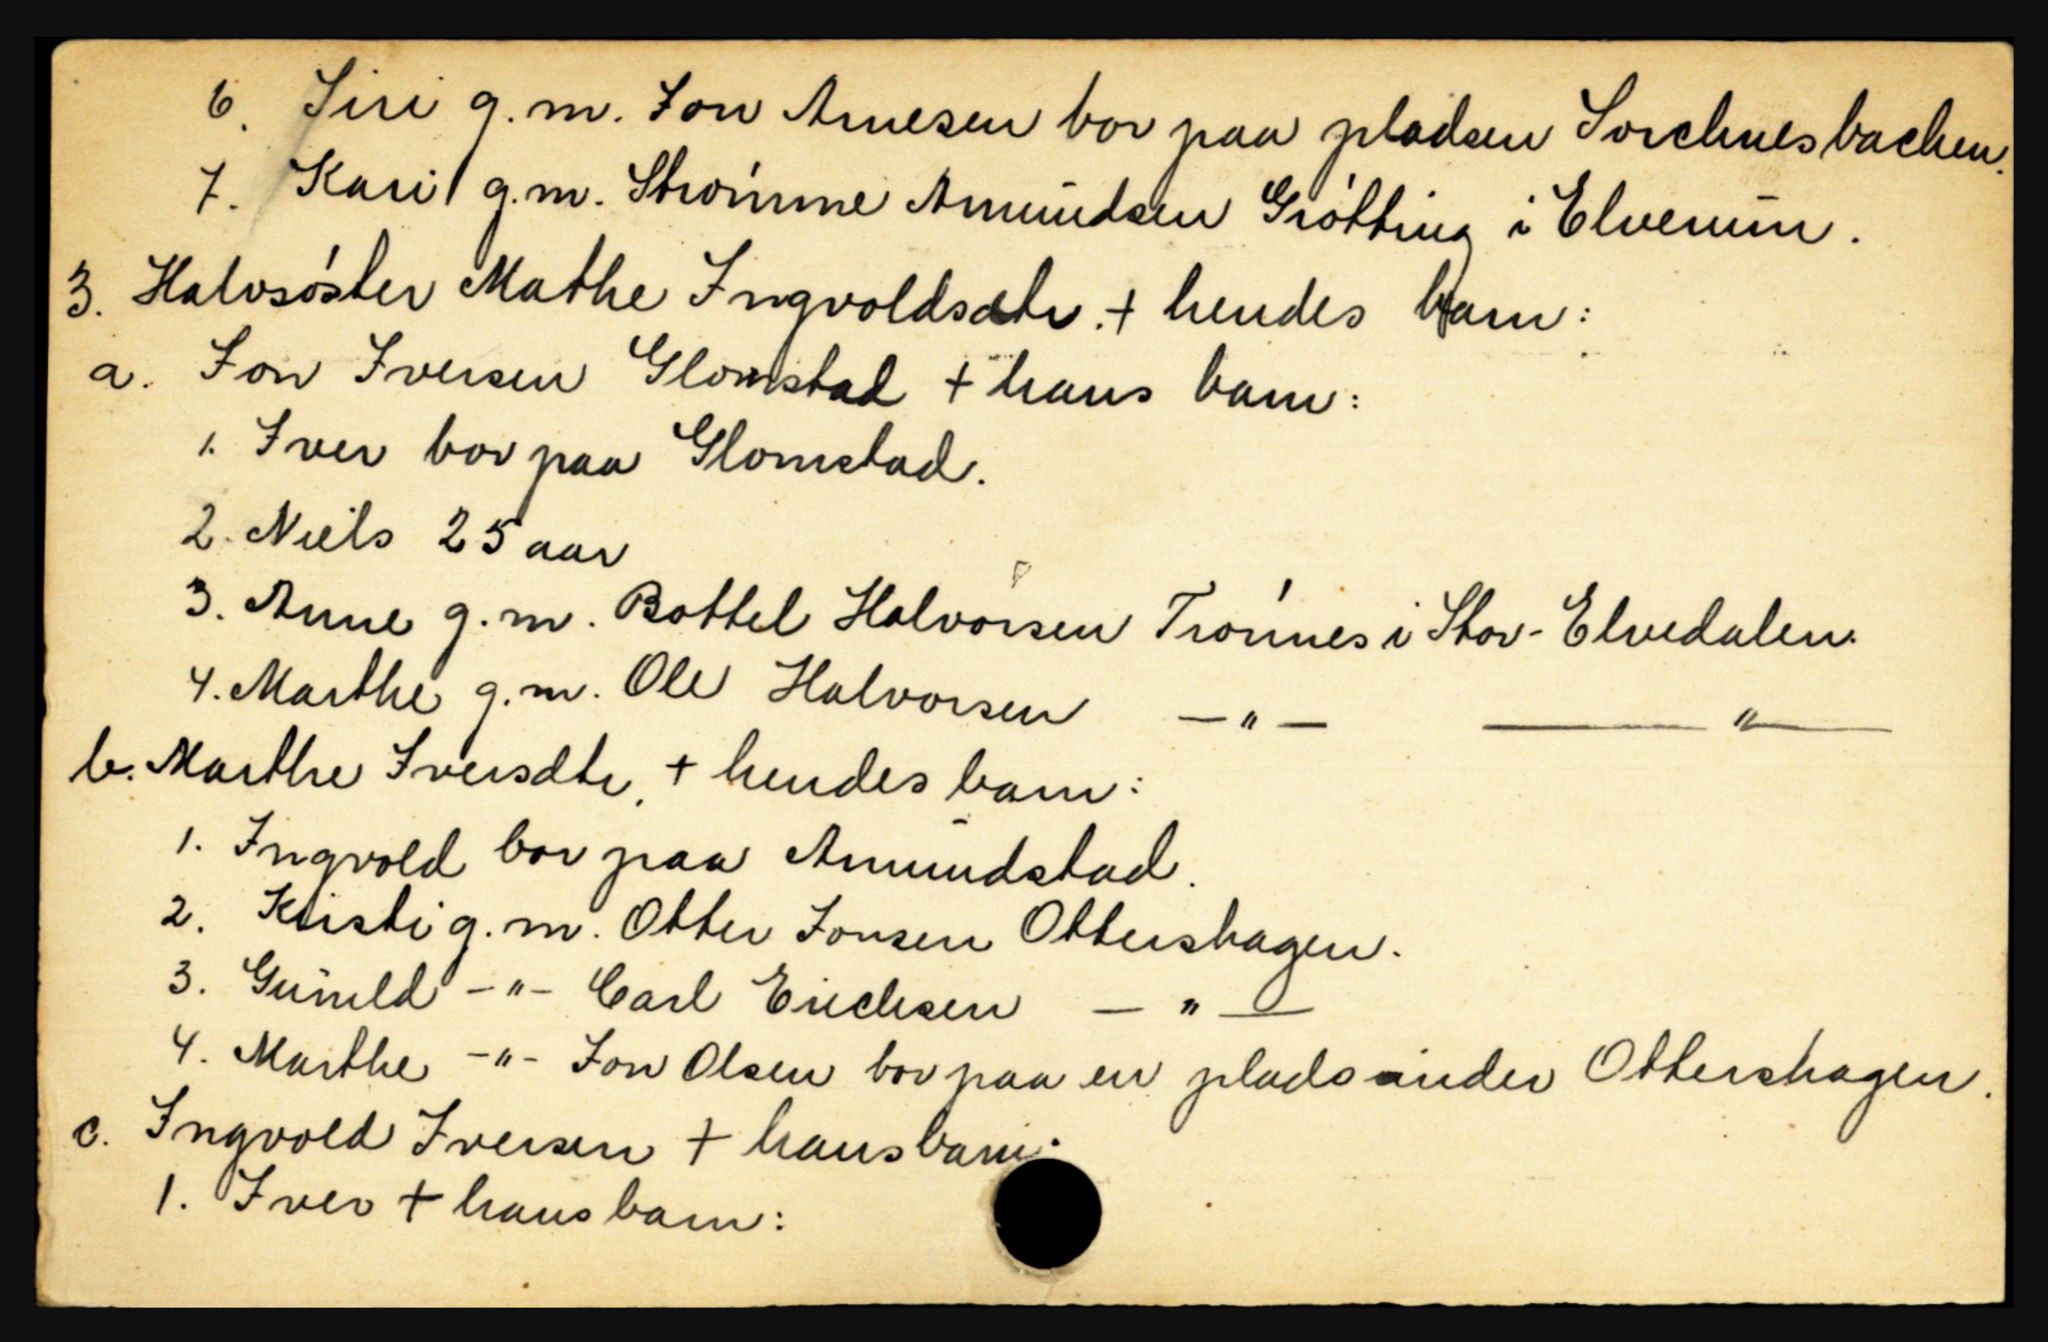 6. Siri g.m. Jon Arnesen bor paa pladsen Sorchnesbachen.
7. Kari g.m. Strömme Amundsen Grötting i Elverum.
3. Halvsöster Mathe Ingvoldsdtr. + hendes barn:
a. Jon Iversen Glomstad + hans barn:
1. Iver bor paa Glomstad.
2. Niels 25 aar
3. Anne g.m. Bottel Halvorsen Trönnes i Stor-Elvedalen.
4. Marthe g.m. Ole Halvorsen — " — — " —
b. Marthe Iversdtr, + hendes barn:
1. Ingvold bor paa Amundstad.
2. Kristi g.m. Otter Jonsen Ottershagen.
3. Gunild - " - Carl Erichsen — " —
4. Marthe - " - Jon Olsen bor paa en plads under Ottershagen.
c. Ingvold Iversen + hans barn:
1. Iver + hans barn: